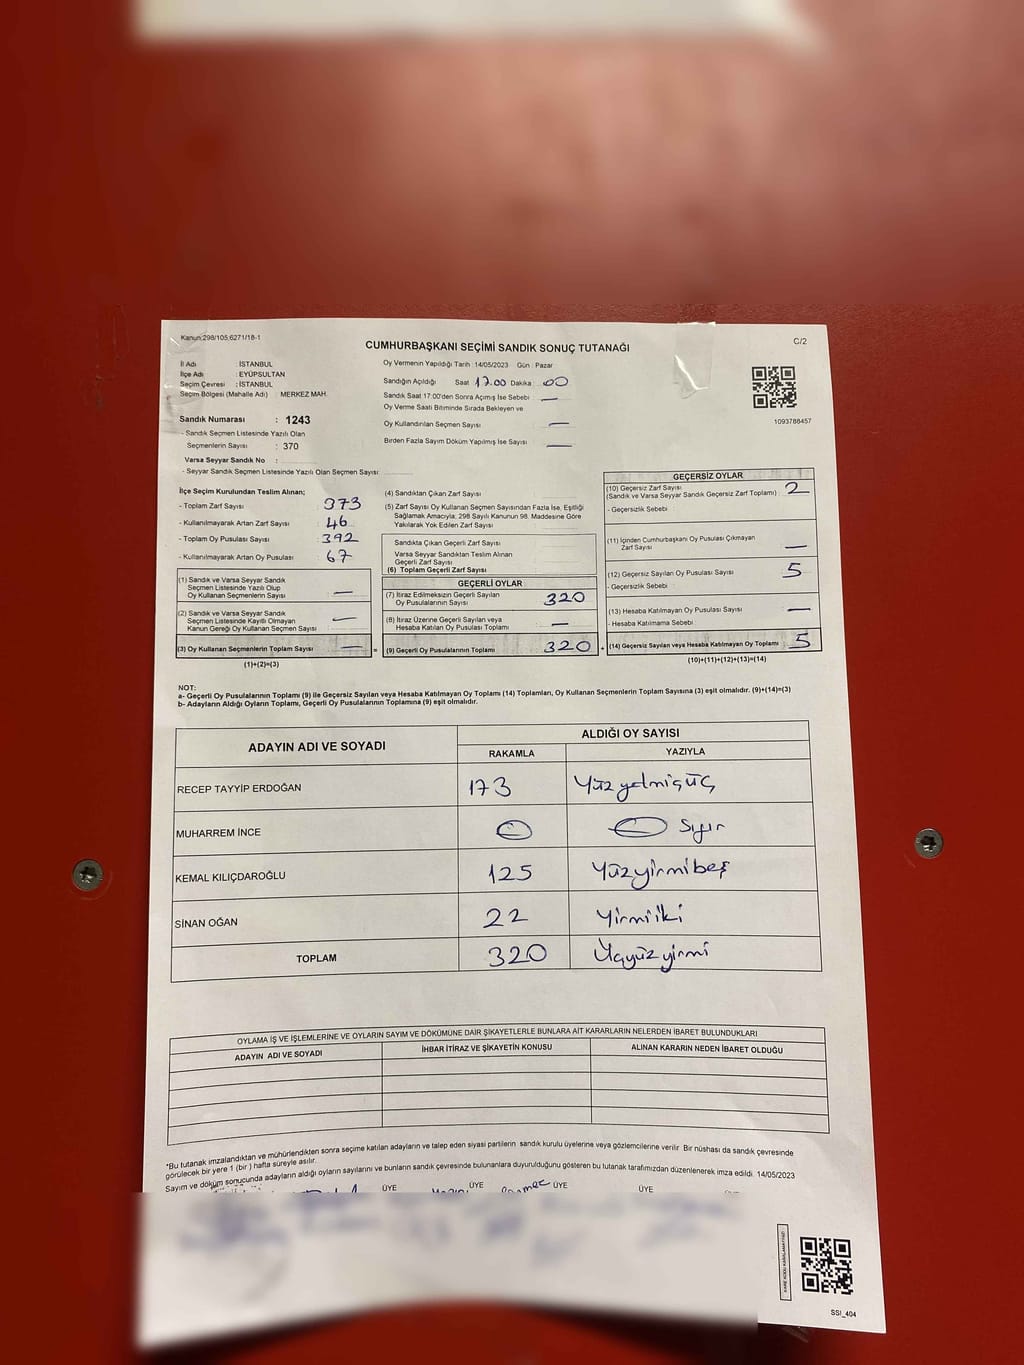 Kanun:298/105;6271/18-1
C/2
CUMHURBAŞKANI SEÇİMİ SANDIK SONUÇ TUTANAĞI
İl Adı : İSTANBUL
İlçe Adı : EYÜPSULTAN
Seçim Çevresi : İSTANBUL
Seçim Bölgesi (Mahalle Adı) : MERKEZ MAH.
Sandık Numarası : 1243
- Sandık Seçmen Listesinde Yazılı Olan
Seçmenlerin Sayısı : 370
Varsa Seyyar Sandık No :
- Seyyar Sandık Seçmen Listesinde Yazılı Olan Seçmen Sayısı
Oy Vermenin Yapıldığı Tarih : 14/05/2023 Gün : Pazar
Sandığın Açıldığı Saat 17.00 Dakika : 00
Sandık Saat 17:00'den Sonra Açımış İse Sebebi —
Oy Verme Saati Bitiminde Sırada Bekleyen ve
Oy Kullandırılan Seçmen Sayısı —
Birden Fazla Sayım Döküm Yapılmış İse Sayısı —
1093788457
İlçe Seçim Kurulundan Teslim Alınan;
- Toplam Zarf Sayısı : 373
- Kullanılmayarak Artan Zarf Sayısı : 46
- Toplam Oy Pusulası Sayısı : 392
- Kullanılmayarak Artan Oy Pusulası : 67
(1) Sandık ve Varsa Seyyar Sandık
Seçmen Listesinde Yazılı Olup
Oy Kullanan Seçmenlerin Sayısı —
(2) Sandık ve Varsa Seyyar Sandık
Seçmen Listesinde Kayıtlı Olmayan
Kanun Gereği Oy Kullanan Seçmen Sayısı —
(3) Oy Kullanan Seçmenlerin Toplam Sayısı — =
(1)+(2)=(3)
(4) Sandıktan Çıkan Zarf Sayısı
(5) Zarf Sayısı Oy Kullanan Seçmen Sayısından Fazla İse, Eşitliği
Sağlamak Amacıyla; 298 Sayılı Kanunun 98. Maddesine Göre
Yakılarak Yok Edilen Zarf Sayısı
Sandıkta Çıkan Geçerli Zarf Sayısı
Varsa Seyyar Sandıktan Teslim Alınan
Geçerli Zarf Sayısı
(6) Toplam Geçerli Zarf Sayısı
GEÇERLİ OYLAR
(7) İtiraz Edilmeksizin Geçerli Sayılan
Oy Pusulalarının Sayısı 320
(8) İtiraz Üzerine Geçerli Sayılan veya
Hesaba Katılan Oy Pusulası Toplamı —
(9) Geçerli Oy Pusulalarının Toplamı 320 +
GEÇERSİZ OYLAR
(10) Geçersiz Zarf Sayısı
(Sandık ve Varsa Seyyar Sandık Geçersiz Zarf Toplamı) : 2
- Geçersizlik Sebebi :
(11) İçinden Cumhurbaşkanı Oy Pusulası Çıkmayan
Zarf Sayısı —
(12) Geçersiz Sayılan Oy Pusulası Sayısı 5
- Geçersizlik Sebebi :
(13) Hesaba Katılmayan Oy Pusulası Sayısı —
- Hesaba Katılmama Sebebi :
(14) Geçersiz Sayılan veya Hesaba Katılmayan Oy Toplamı 5
(10)+(11)+(12)+(13)=(14)
NOT:
a- Geçerli Oy Pusulalarının Toplamı (9) ile Geçersiz Sayılan veya Hesaba Katılmayan Oy Toplamı (14) Toplamları, Oy Kullanan Seçmenlerin Toplam Sayısına (3) eşit olmalıdır. (9)+(14)=(3)
b- Adayların Aldığı Oyların Toplamı, Geçerli Oy Pusulalarının Toplamına (9) eşit olmalıdır.
ADAYIN ADI VE SOYADI
ALDIĞI OY SAYISI
RAKAMLA YAZIYLA
RECEP TAYYİP ERDOĞAN 173 Yüzyetmişüç
MUHARREM İNCE 0 0 Sıfır
KEMAL KILIÇDAROĞLU 125 Yüzyirmibeş
SİNAN OĞAN 22 Yirmiiki
TOPLAM 320 Üçyüzyirmi
OYLAMA İŞ VE İŞLEMLERİNE VE OYLARIN SAYIM VE DÖKÜMÜNE DAİR ŞİKAYETLERLE BUNLARA AİT KARARLARIN NELERDEN İBARET BULUNDUKLARI
ADAYIN ADI VE SOYADI İHBAR İTİRAZ VE ŞİKAYETİN KONUSU ALINAN KARARIN NEDEN İBARET OLDUĞU
*Bu tutanak imzalandıktan ve mühürlendikten sonra seçime katılan adayların ve talep eden siyasi partilerin sandık kurulu üyelerine veya gözlemcilerine verilir. Bir nüshası da sandık çevresinde
görülecek bir yere 1 (bir ) hafta süreyle asılır.
Sayım ve döküm sonucunda adayların aldığı oyların sayılarını ve bunların sandık çevresinde bulunanlara duyurulduğunu gösteren bu tutanak tarafımızdan düzenlenerek imza edildi. 14/05/2023
ÜYE ÜYE ÜYE ÜYE
SSI_404